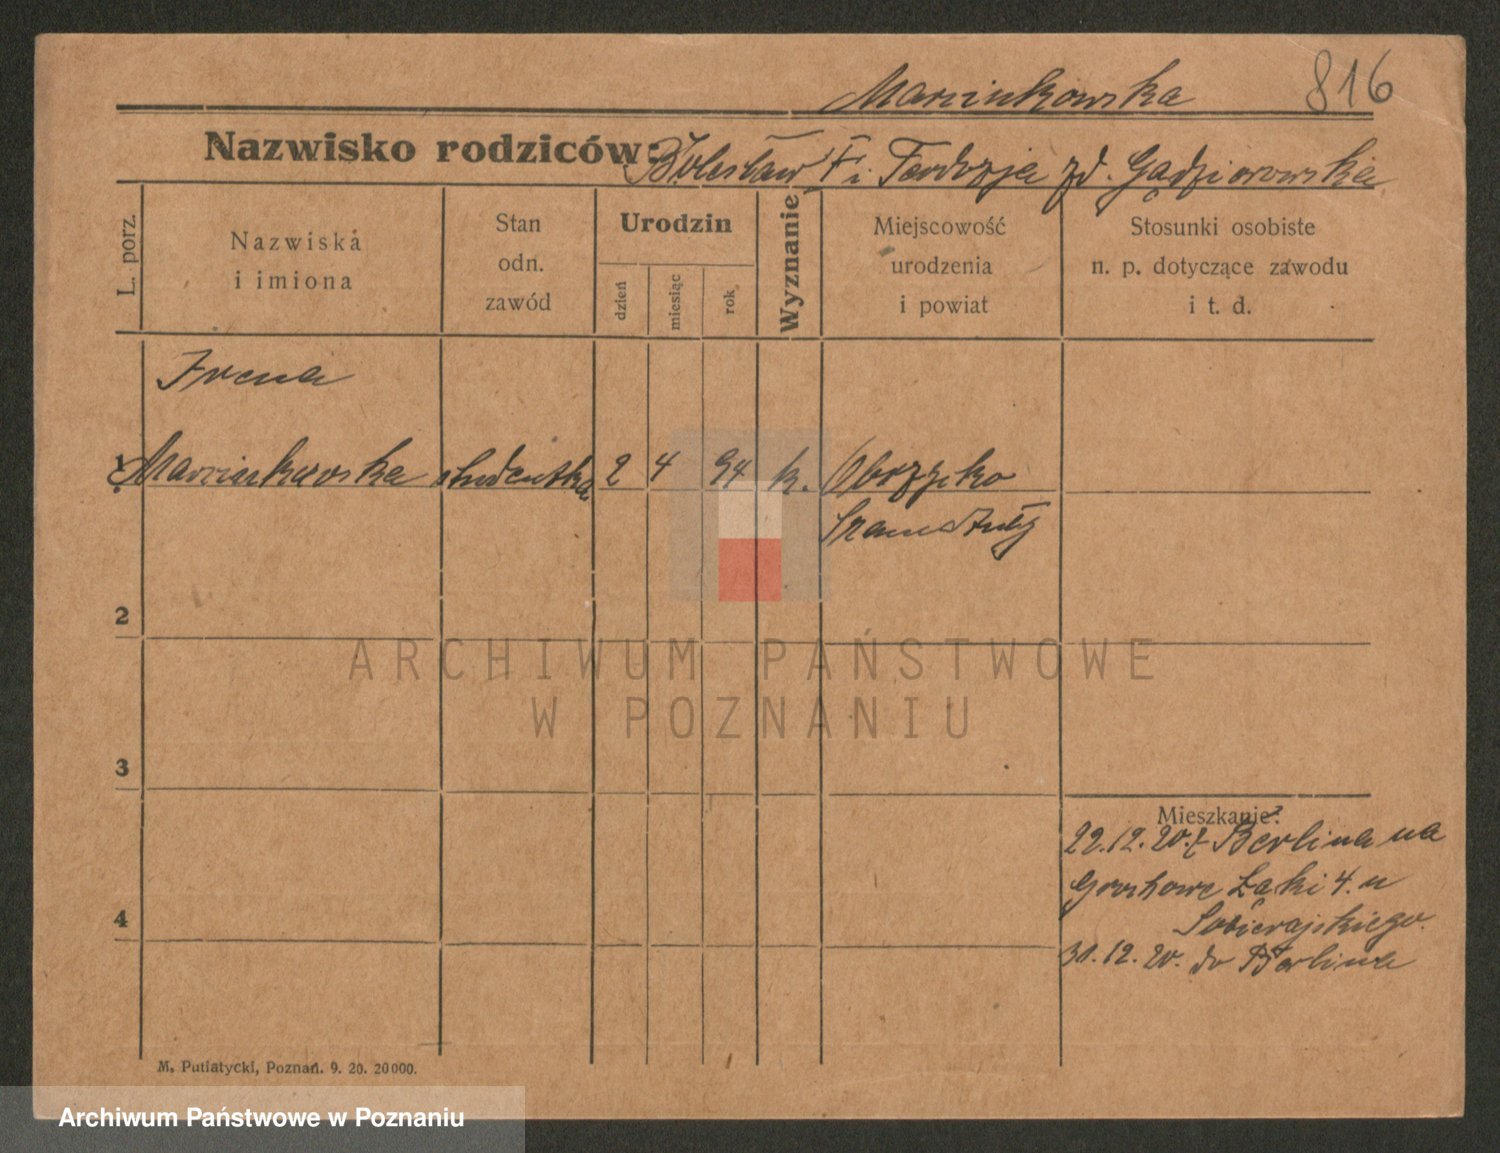 Marcinkowska 816
Nazwisko rodziców: Bolesław † i Teodozja zd. Gądziorowska
L. porz.
Nazwiska
i imiona
Stan
odn.
zawód
Urodzin
dzień
miesiąc
rok
Wyznanie
Miejscowość
urodzenia
i powiat
Stosunki osobiste
n. p. dotyczące zawodu
i t. d.
Irena
1 Marcinkowska studentka 2 4 94 k. Obrzycko
Szamotuły
2
ARCHIWUM PAŃSTWOWE
W POZNANIU
3
Mieszkanie:
22.12.20. z Berlina na
Grochowe Łąki 4. u
4
Sobierajskiego.
31.12.20. do Berlina
M. Putiatycki, Poznań. 9. 20. 20000.
Archiwum Państwowe w Poznaniu